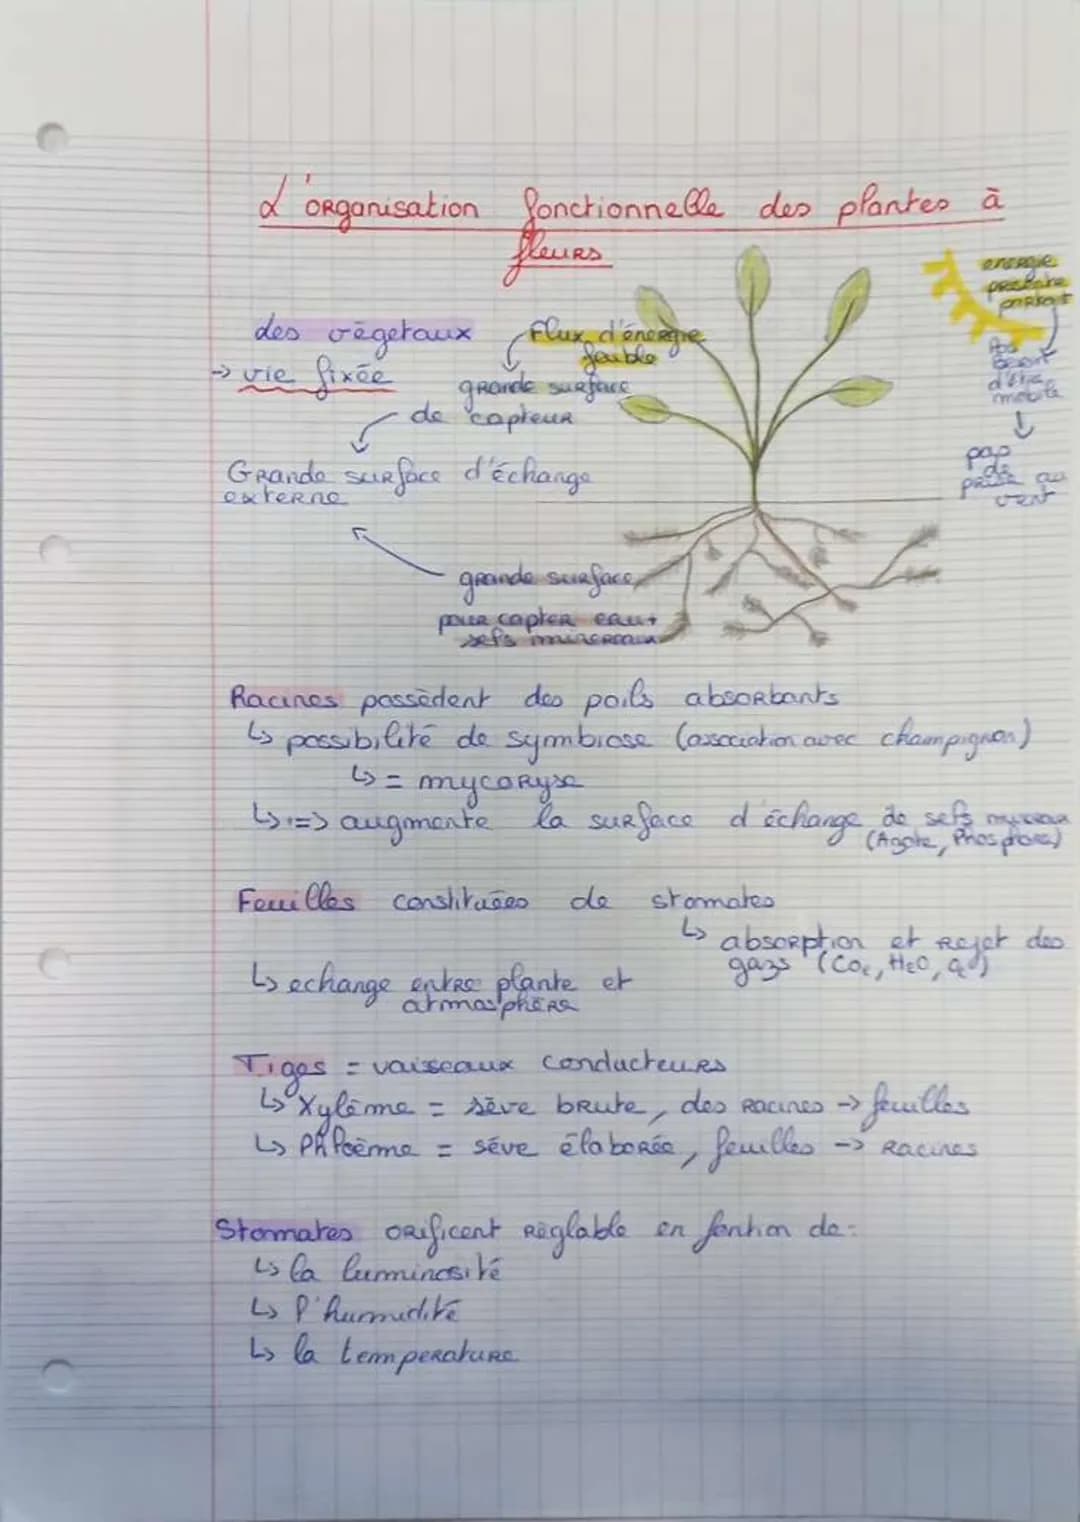 L'organisation fonctionnelle des plantes à
fleurs
des végetaux
→ vie fixée
Flux d'énergie
faible
grande surface
de capteur
Grande surface d'échange
externe
grande surface
pour capter eau +
sels minéraux
energie
présente
partout
Pas
besoin
d'être
mobile
↓
pas
de
prise au
vent
Racines possèdent des poils absorbants
↳ possibilité de symbiose (association avec champignon)
↳ = mycoryse
↳ => augmente la surface d'échange de sels minéraux
(Agote, Phosphore)
Feuilles constituées de stomates
↳ absorption et rejet des
gazs (CO₂, H₂O, O₂)
↳ echange entre plante et
atmosphère
Tiges = vaisseaux conducteurs
↳ Xylème = sève brute, des racines → feuilles
↳ Phloème = séve élaborée, feuilles → Racines
Stomates orificent réglable en fontion de:
↳ la luminosité
↳ l'humidité
↳ la temperature